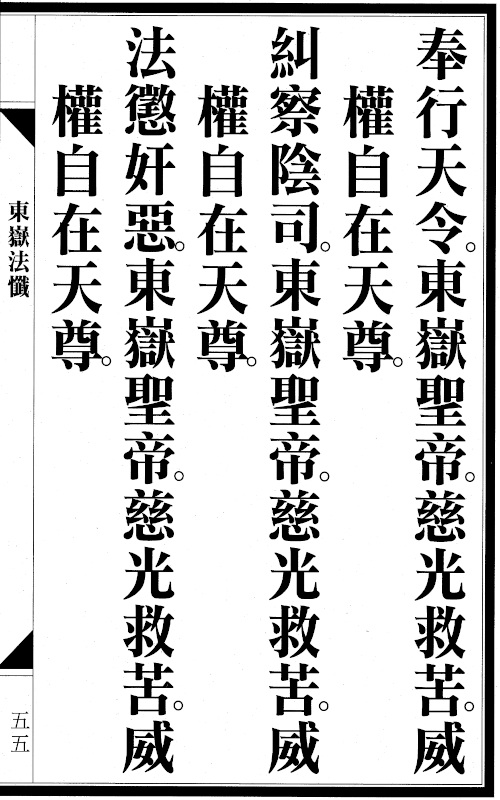 奉行天令。東嶽聖帝。慈光救苦。威
權自在天尊。
糾察陰司。東嶽聖帝。慈光救苦。威
權自在天尊。
法懲奸惡。東嶽聖帝。慈光救苦。威
權自在天尊。
東嶽法懺
五五